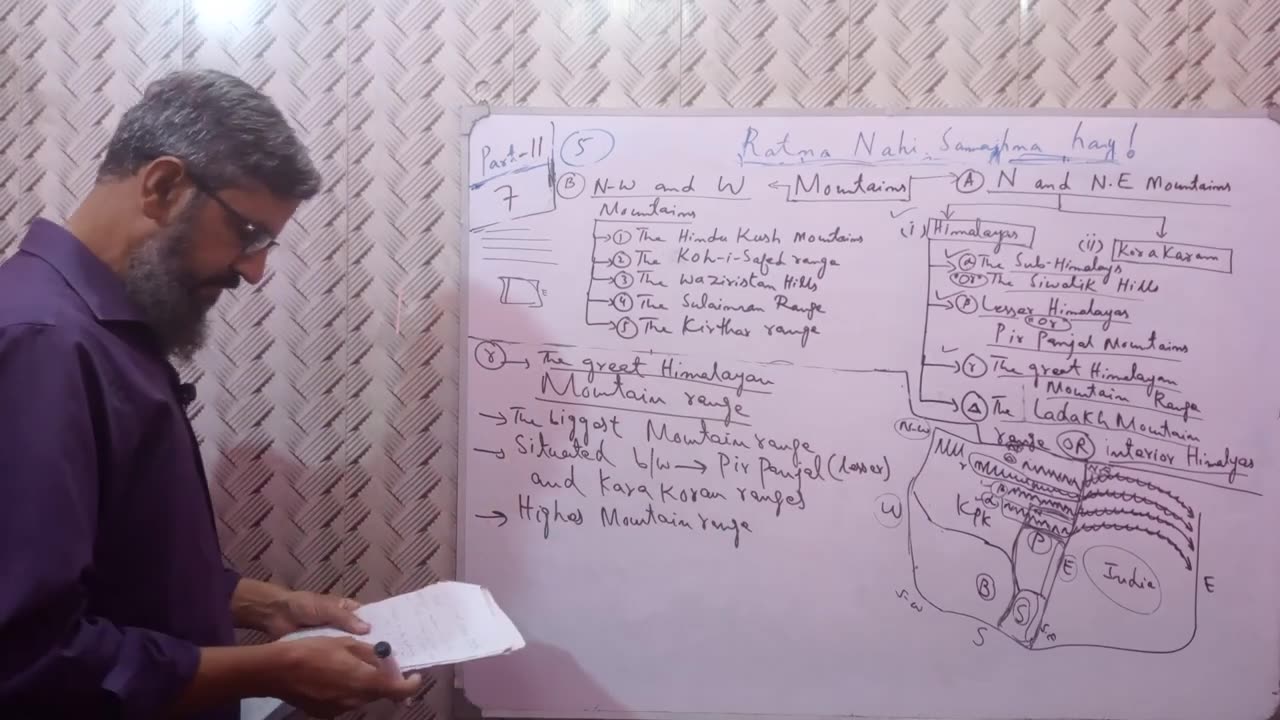 Part-II
7
5
Ratna Nahi Samajhna hay!
B N-W and W
Mountains
A N and N.E Mountains
Mountains
1 The Hindu Kush Mountains
2 The Koh-i-Safed range
3 The Waziristan Hills
4 The Sulaiman Range
5 The Kirthar range
(i) Himalayas
(ii) KoraKaram
α The Sub-Himalays
"OR" The Siwalik Hills
β Lesser Himalayas
"or"
Pir Panjal Mountains
γ The great Himalayan
Mountain Range
Δ The Ladakh Mountain
range OR interior Himalyas
γ → The great Himalayan
Mountain range
→ The biggest Mountain range
→ Situated b/w → Pir panjal (lesser)
and Kara Koram ranges
→ Highes Mountain range
N-W
W
KPK
P
E
India
E
B
S
S